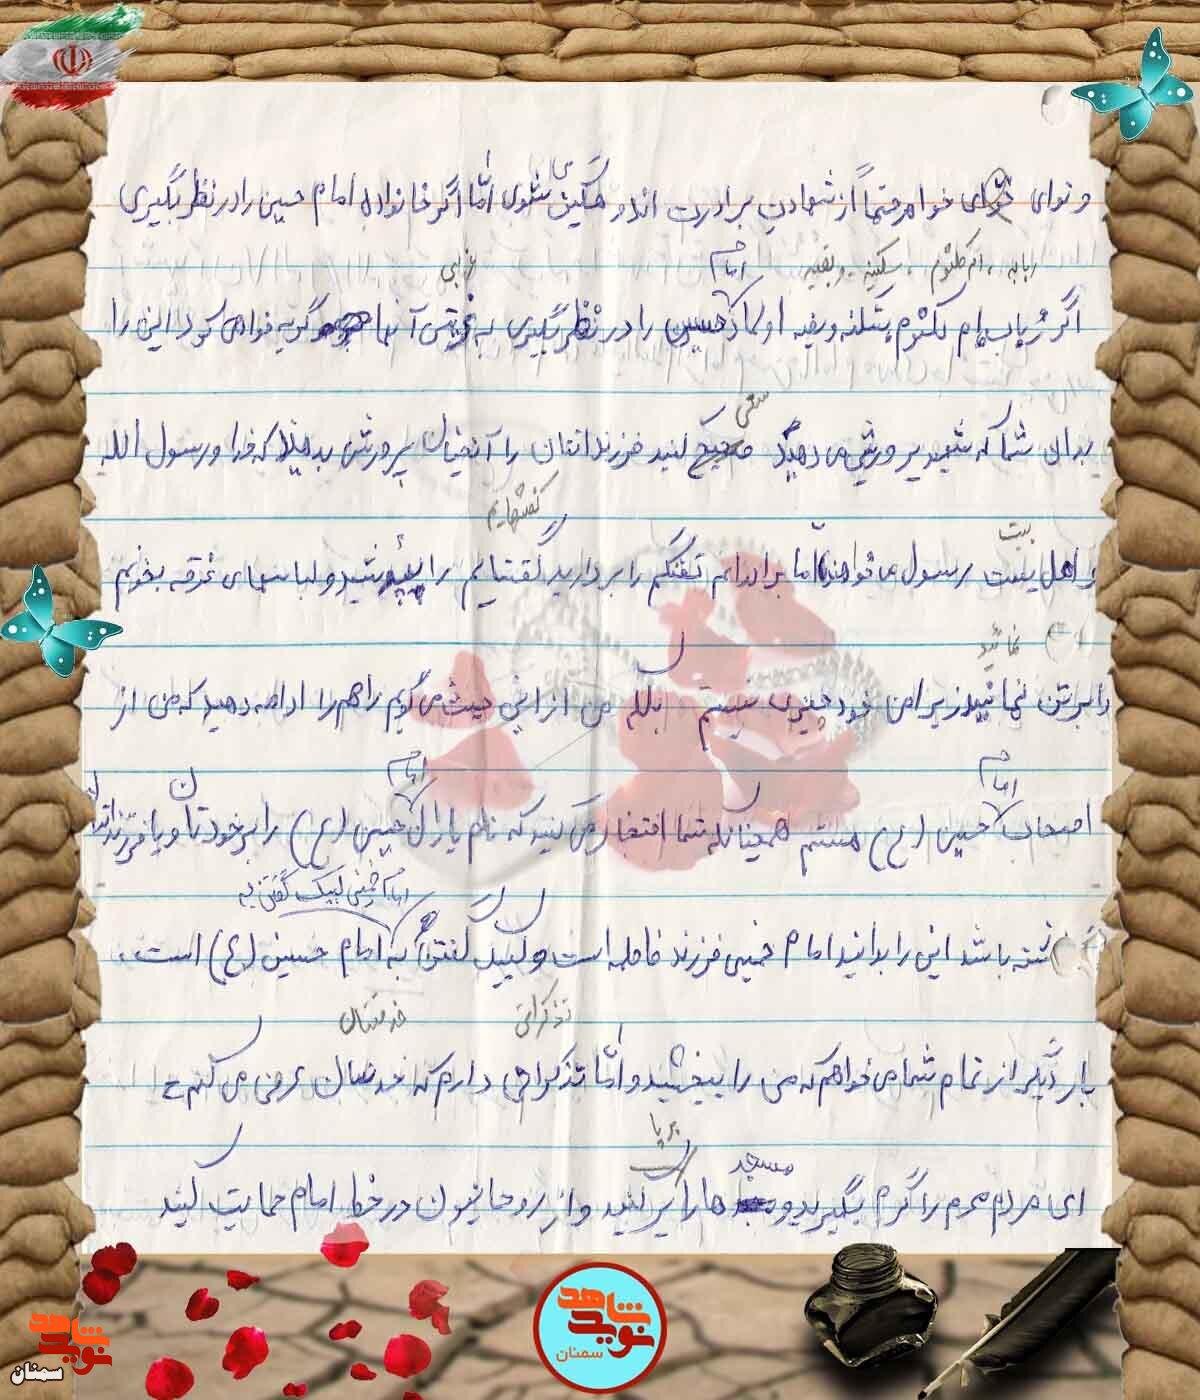 و توای خواهر حتماً از شهادت برادرت اندوهگین می شوی امّا اگر خانواده امام حسین را در نظر بگیری
ربابه، ام کلثوم، سکینه و بقیه
امام
غریبی
اگر رباب ام کلثوم سکینه و بقیه اولاد حسین را در نظر بگیری به غریبی آنها گریه خواهی کرد این را
سعی
بدان شما که شهید پرورش می دهید کنید فرزندانتان را آنچنان پرورش بدهید که خدا و رسول الله
بیت
کفشهایم
و اهل بیت رسول می خواهند امّا برادرانم تفنگم را بردارید کفشهایم را بپوشید و لباسهای غرقه بخونم
نمائید
را بر تن نمائید زیرا من خود چیزی نیستم بلکه من از این حیث می گویم راهم را ادامه دهید که من از
امام
امام
اصحاب حسین (ع) هستم همچنانکه شما افتخار می کنید که نام یاران حسین (ع) را بر خودتان و یا فرزندانتان
امام خمینی لبیک گفتن به
باشد این را بدانید امام خمینی فرزند فاطمه است و لبیک گفتن به امام حسین (ع) است.
تذکراتی
خدمتتان
بار دیگر از تمام شما می خواهم که من را ببخشید و امّا تذکراتی دارم که خدمتتان عرض می کنم
برپا
مسجد
ای مردم محرم را گرم بگیرید و ها را پر کنید و از روحانیون در خط امام حمایت کنید
شاهد
نوید
سمنان
شاهد
نوید
سمنان